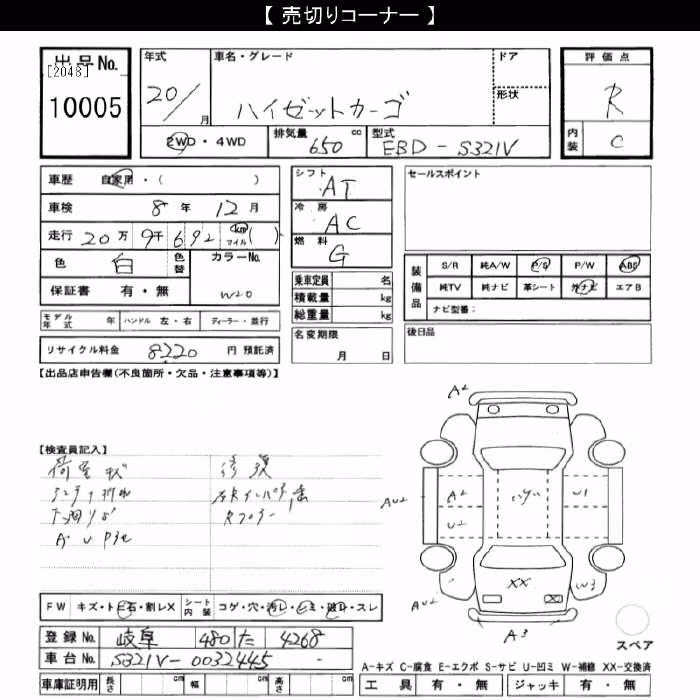 【 売切りコーナー 】
出品No.
[2048]
10005
年式
20/
月
車名・グレード
ハイゼットカーゴ
ドア
形状
2WD・4WD
排気量
650
cc
型式
EBD-S321V
評価点
R
内装
C
車歴 自家用・( )
車検 8年 12月
走行 20万 9千 692 km マイル ( )
色 白 色替 カラーNo.
W20
保証書 有・無
モデル年式 年 ハンドル 左・右 ディーラー・並行
リサイクル料金 8220 円 預託済
シフト
AT
冷房
AC
燃料
G
乗車定員 名
積載量 kg
総重量 kg
名変期限
月 日
セールスポイント
装備品
S/R 純A/W P/S P/W ABS
純TV 純ナビ 革シート 外ナビ エアB
ナビ型番：
後日品
【出品店申告欄(不良箇所・欠品・注意事項等)】
【検査員記入】
荷室状
A・U
A2
AU2
A2
U2
W1
XX
X
AU2
W3
A3
スペア
FW キズ・トビ石・割レX シート内装 コゲ・穴・汚レ・シミ・破レ・スレ
登録No. 岐阜 480 た 4268
車台No. S321V-0032445 -
車庫証明用 長さ cm 幅 cm 高さ cm
A-キズ C-腐食 E-エクボ S-サビ U-凹ミ W-補修 XX-交換済
工具 有・無 ジャッキ 有・無